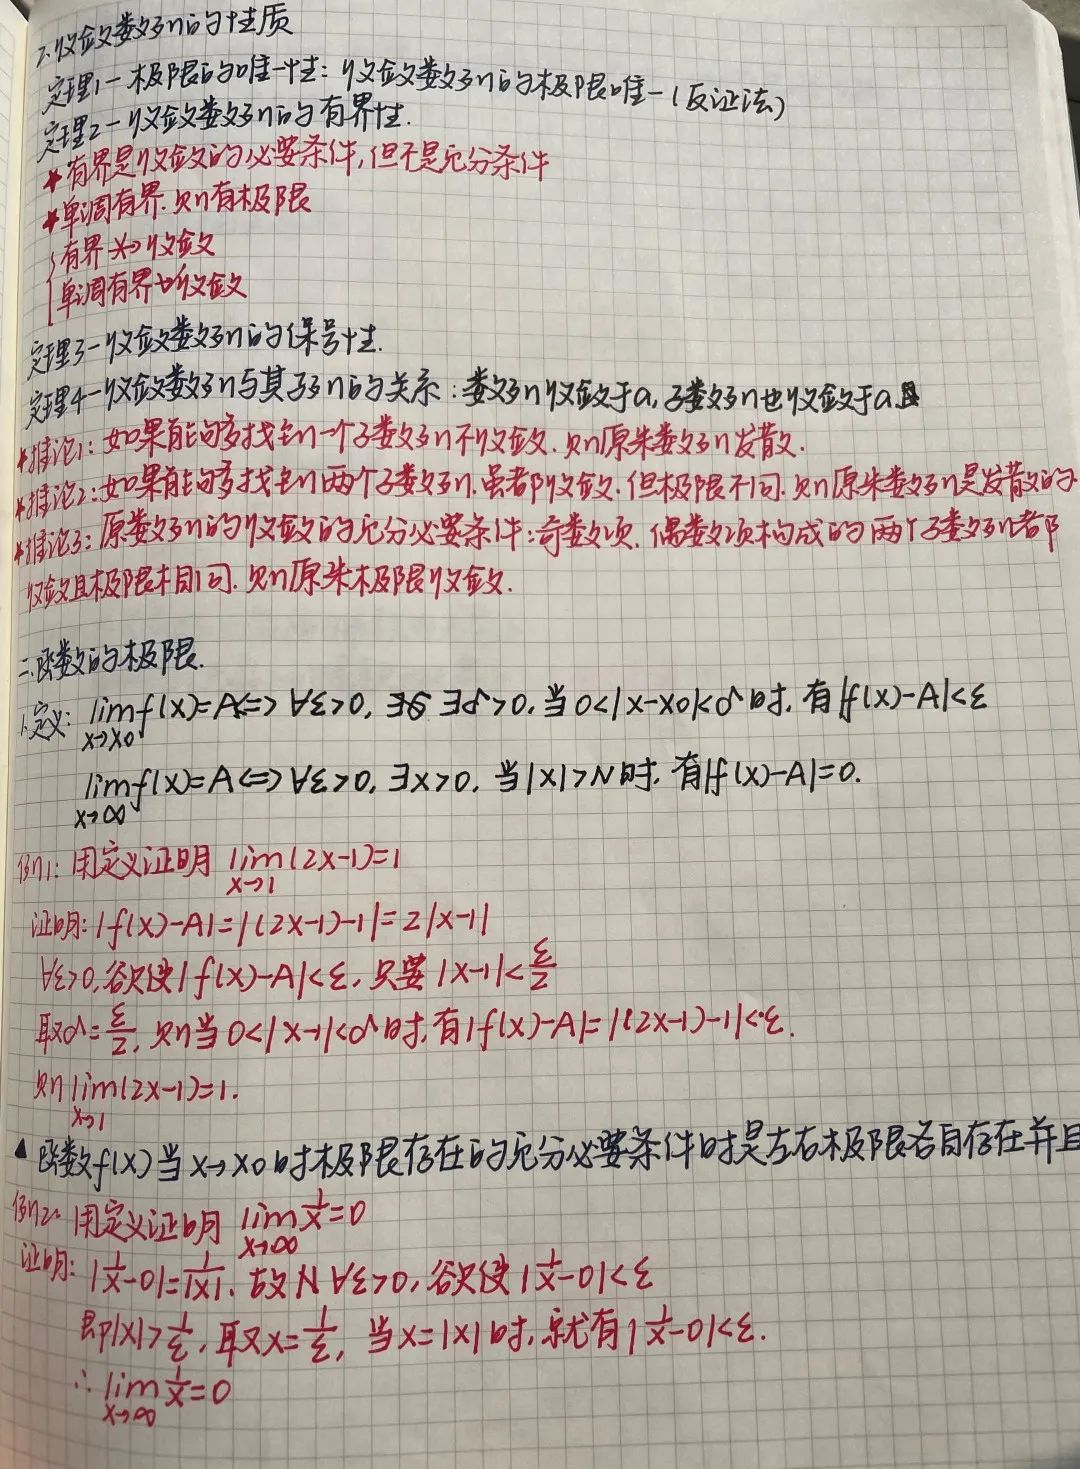 2.收敛数列的性质
定理1-极限的唯一性:收敛数列的极限唯一(反证法)
定理2-收敛数列的有界性.
*有界是收敛的必要条件,但不是充分条件
*单调有界.则有极限
有界≠>收敛
单调有界=>收敛
定理3-收敛数列的保号性.
定理4-收敛数列与其子列的关系:数列收敛于a,子数列也收敛于a
*推论1:如果能够找到一个子数列不收敛.则原来数列发散.
*推论2:如果能够找到两个子数列.虽都收敛.但极限不同.则原来数列是发散的
*推论3:原数列的收敛的充分必要条件:奇数项.偶数项构成的两个子数列都
收敛且极限相同.则原来极限收敛.
二.函数的极限.
1.定义: lim f(x)=A<=>∀ε>0, ∃δ>0,当0<|x-x0|<δ时,有|f(x)-A|<ε
x→x0
lim f(x)=A<=>∀ε>0,∃x>0,当|x|>N时.有|f(x)-A|=0.
x→∞
例1:用定义证明 lim(2x-1)=1
x→1
证明:|f(x)-A|=|(2x-1)-1|=2|x-1|
∀ε>0,欲使|f(x)-A|<ε,只要|x-1|<ε/2
取δ=ε/2,则当0<|x-1|<δ时,有|f(x)-A|=|(2x-1)-1|<ε.
则lim(2x-1)=1.
x→1
▲函数f(x)当x→x0时极限存在的充分必要条件时是左右极限各自存在并且
例2:用定义证明 lim 1/x=0
x→∞
证明:|1/x-0|=1/|x|.故N ∀ε>0,欲使|1/x-0|<ε
即|x|>1/ε,取x=1/ε,当x=|x|时,就有|1/x-0|<ε.
∴lim 1/x=0
x→∞